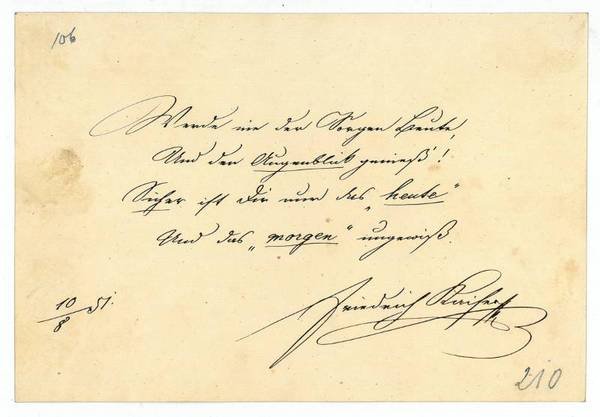 106
Werde nie der Sorgen Beute,
Und den Augenblick genieß'!
Sicher ist Dir nur das „heute"
Und das „morgen" ungewiß.
Friedrich Kaiser
10/8 51.
210